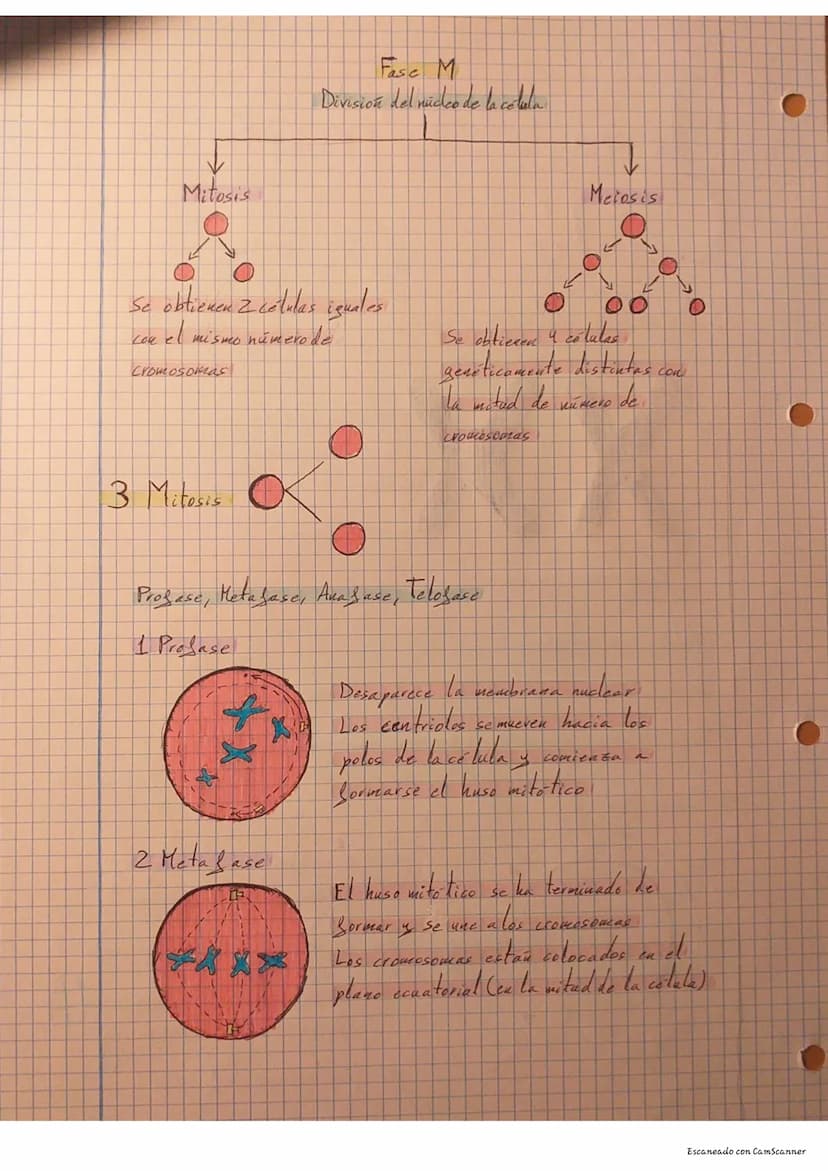 Fase M
División del núcleo de la célula
Mitosis
Meiosis
Se obtienen 2 células iguales
con el mismo número de
cromosomas
Se obtienen 4 células
genéticamente distintas con
la mitad de número de
cromosomas
3 Mitosis
Profase, Metafase, Anafase, Telofase
1 Profase
Desaparece la membrana nuclear
Los centriolos se mueven hacia los
polos de la célula y comienza a
formarse el huso mitótico
2 Metafase
El huso mitótico se ha terminado de
formar y se une a los cromosomas
Los cromosomas están colocados en el
plano ecuatorial (en la mitad de la célula)
Escaneado con CamScanner